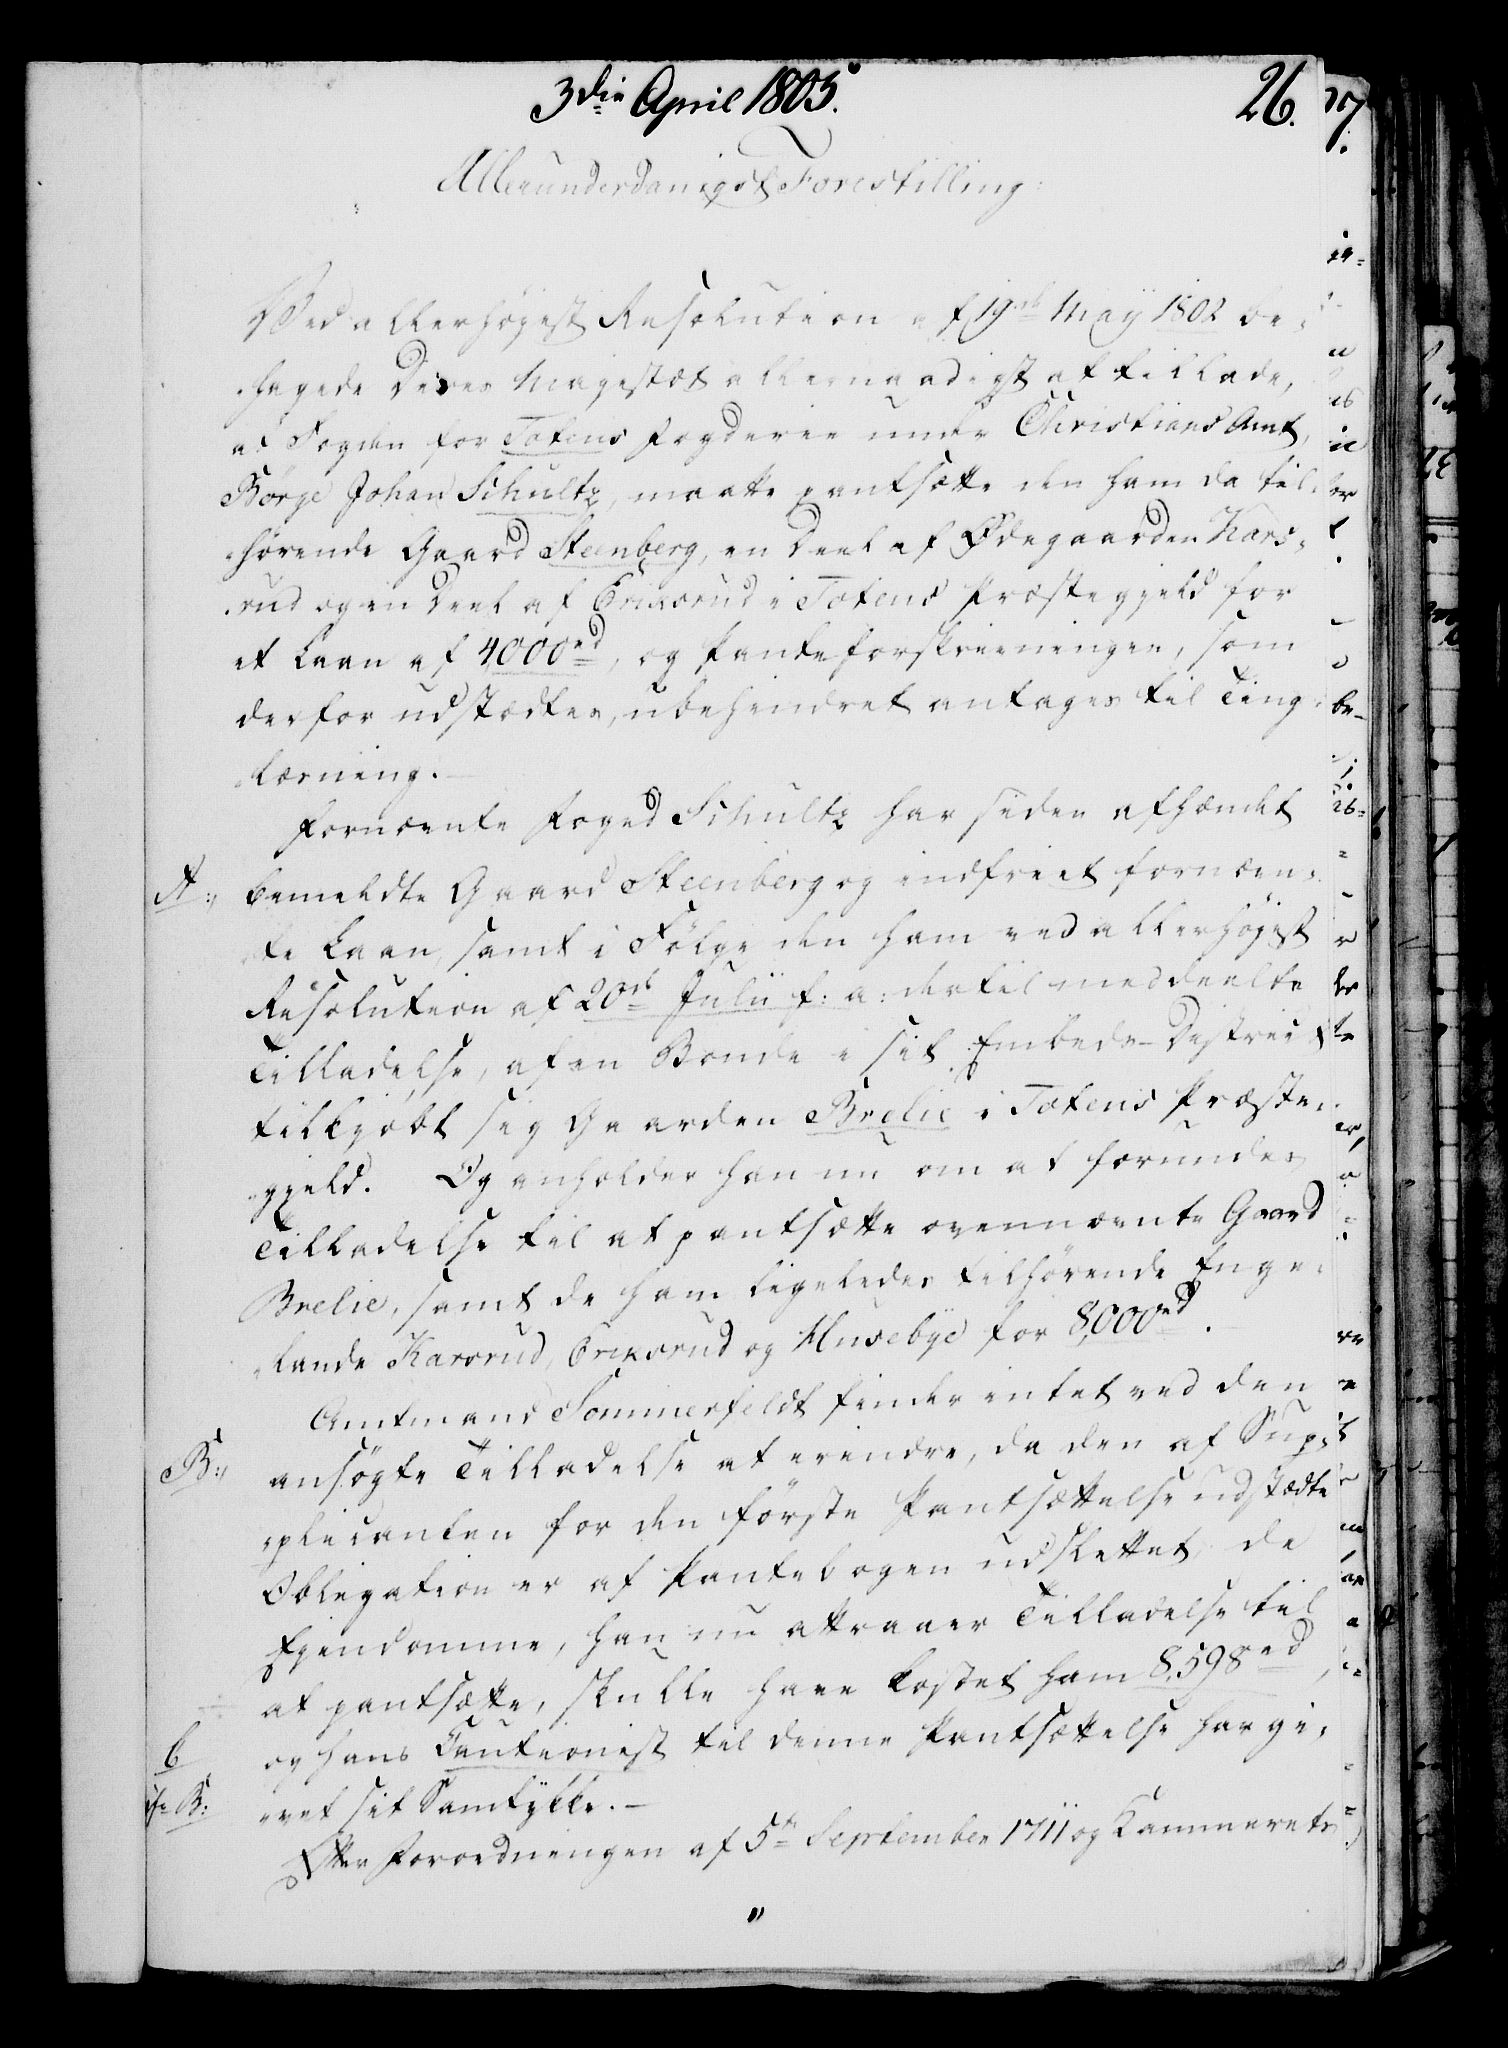 3die April 1805.
26.
Allerunderdanigst Forestilling:
Ved allerhøjest Resolution af 19de Maij 1802 be-
hagede Deres Majestæt allernaadigst at tillade,
at Fogden for Totens Fogderie under Christians Amt,
Börge Johan Schultz, maatte pantsætte den ham da til-
hørende Gaard Steenberg, en Deel af Ødegaarden Kars-
rud og en Deel af Eriksrud i Totens Præstegjeld for
et Laan af 4000 rd, og Panteforskrivningen, som
derfor udstædtes, ubehindret antages til Ting-
læsning.
Fornævnte Foged Schultz har siden afhændet
A:, bemeldte Gaard Steenberg og indfriet fornævn-
te Laan, samt i Følge den ham ved allerhøjest
Resolution af 20de Julii f: a: dertil meddeelte
Tilladelse, af en Bonde i sit Embeds-District
tilkjøbt sig Gaarden Brelie i Totens Præste-
gjeld. Og anholder han nu om at forundes
Tilladelse til at pantsætte ovennævnte Gaard
Brelie, samt de ham ligeledes tilhørende Enge-
lande Karsrud, Eriksrud og Husebye for 8,000 rd.
Amtmand Sommerfeldt finder intet ved den
B:, ansøgte Tilladelse at erindre, da den af Sup-
plicanten for den første Pantsættelse udstædte
Obligation er af Pantebogen udslettet, de
Ejendomme, han nu attraaer Tilladelse til
at pantsætte, skulle have kostet ham 8,598 rd,
b
og hans Cautionist til denne Pantsættelse har gi-
B:
vet sit Samtykke.
Efter Forordningen af 5te September 1711 og Kammerets
"